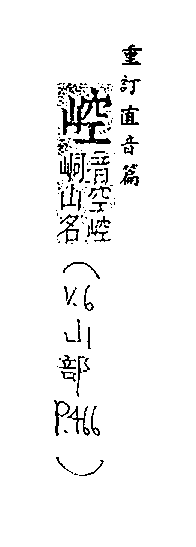 重訂直音篇
崆
音空崆
峒山名
(V.6
山部
P.466
)